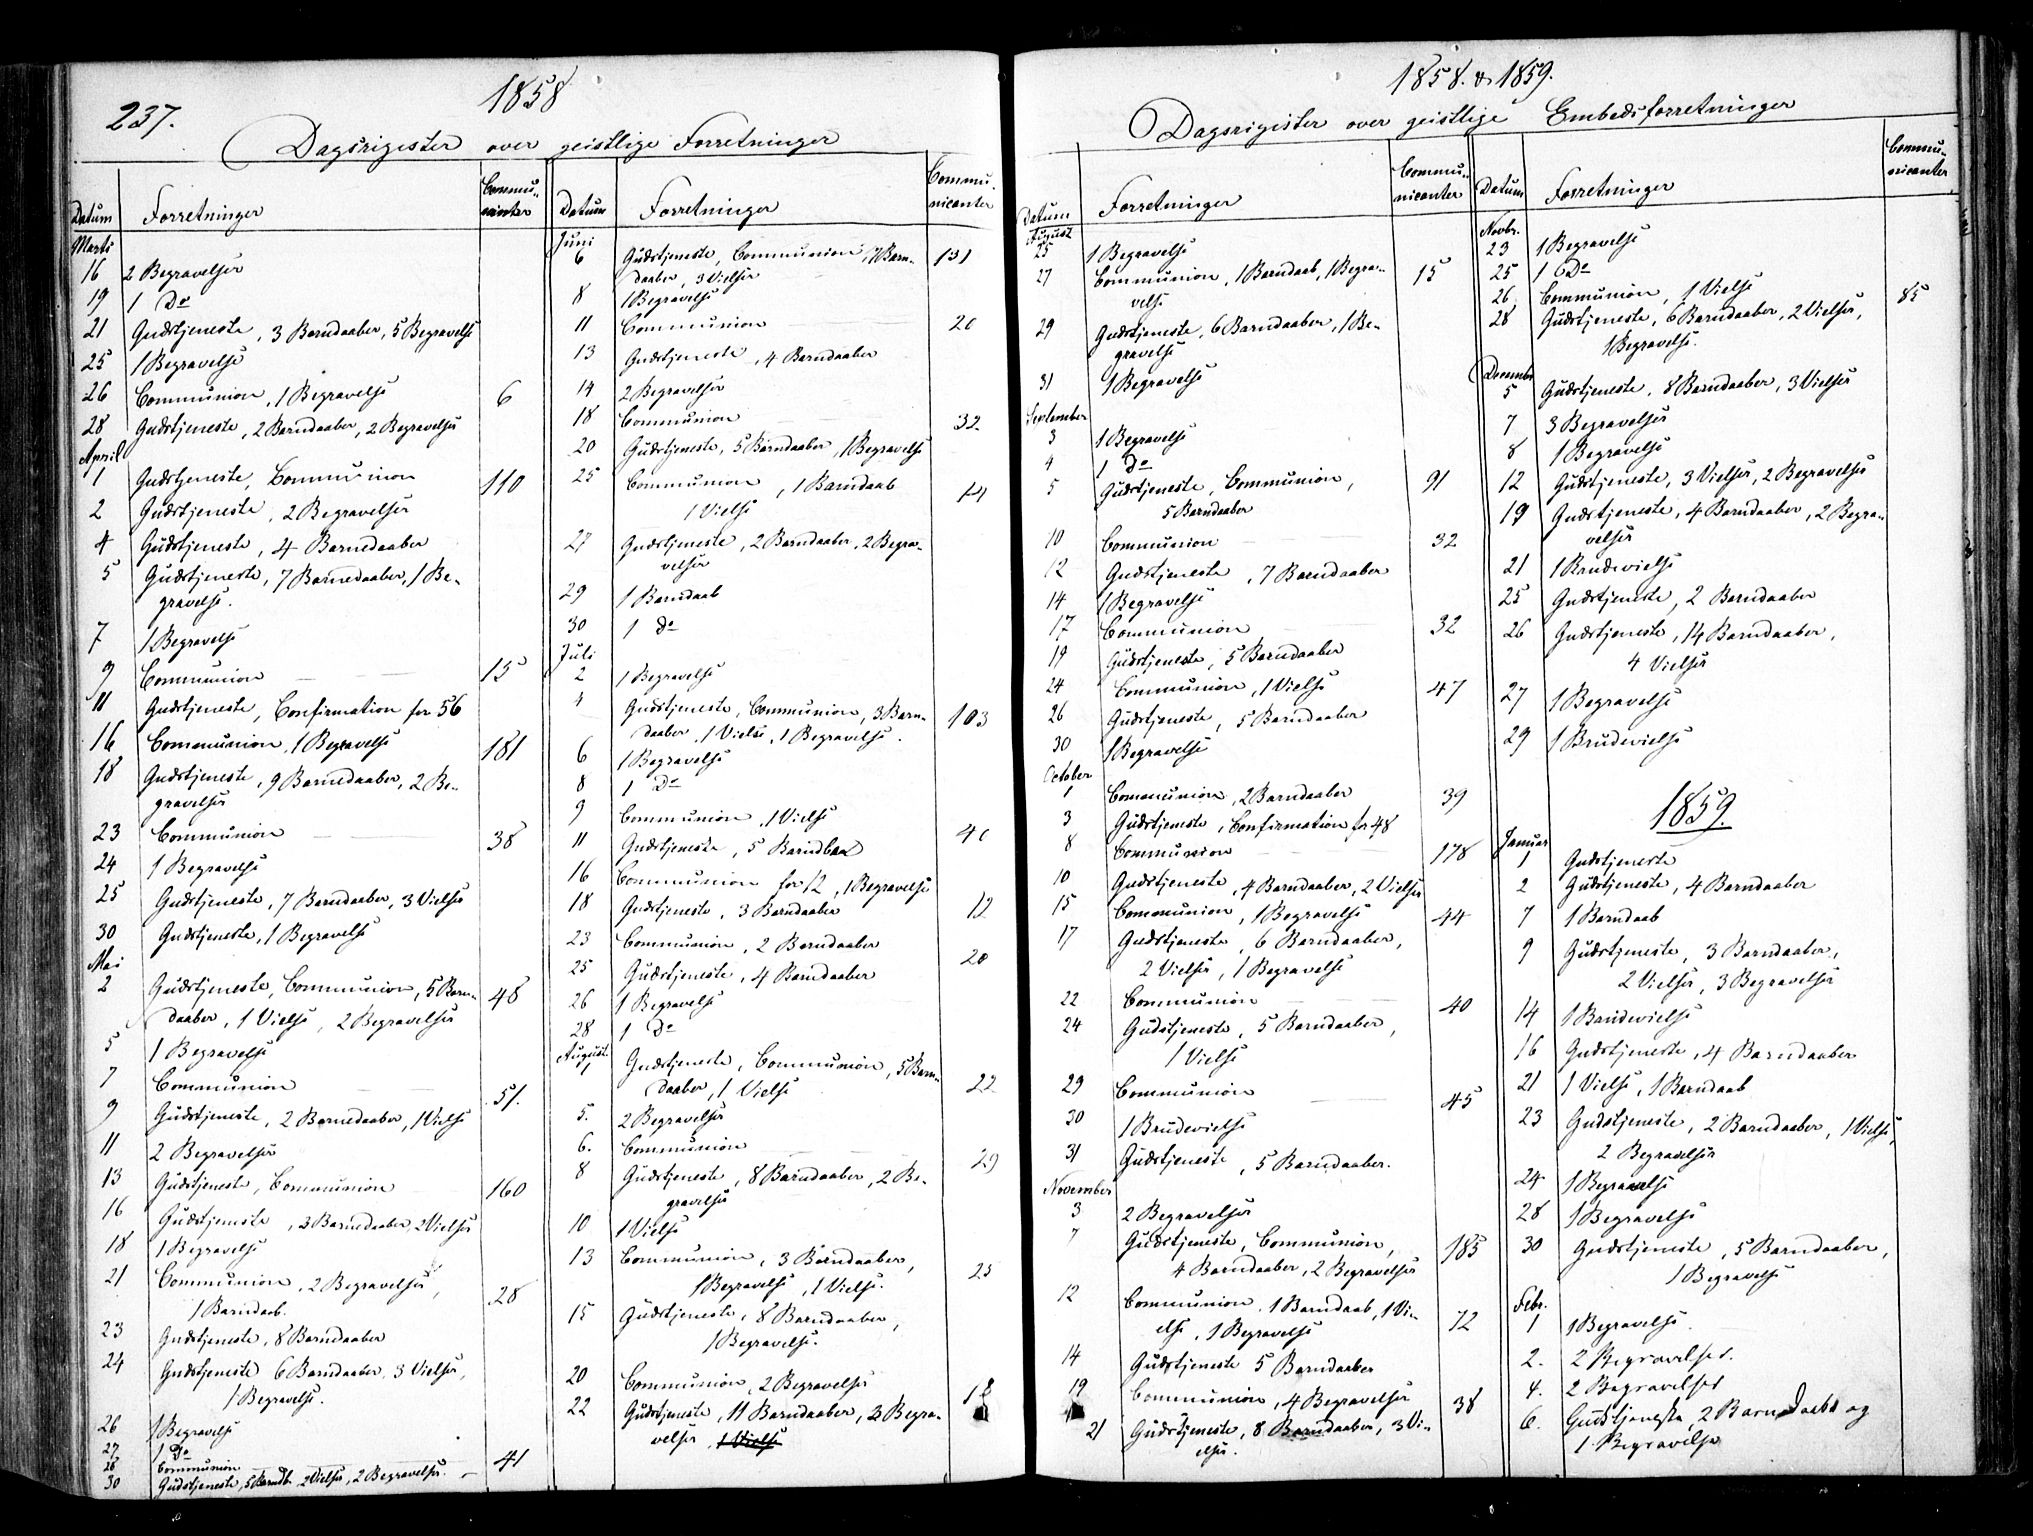 237.
1858
Dagsrigister over geistlige Forretninger
Datum
Forretninger
Commu-
nicanter
Marts
16 2 Begravelser
19 1 Do
21 Gudstjeneste, 3 Barndaaber, 5 Begravelse
25 1 Begravelse
26 Communion, 1 Begravelse 6
28 Gudstjeneste, 2 Barndaaber, 2 Begravelser
April
1 Gudstjeneste, Communion 110
2 Gudstjeneste, 2 Begravelser
4 Gudstjeneste, 4 Barnedaaber
5 Gudstjeneste, 7 Barnedaaber, 1 Be-
gravelse.
7 1 Begravelse
9 Communion 15
11 Gudstjeneste, Confirmation for 56
16 Communion, 1 Begravelse 181
18 Gudstjeneste, 9 Barnedaaber, 2 Be-
gravelser
23 Communion 38
24 1 Begravelse
25 Gudstjeneste, 7 Barndaaber, 3 Vielser
30 Gudstjeneste, 1 Begravelse
Mai
2 Gudstjeneste, Communion, 5 Barn-
daaber, 1 Vielse, 2 Begravelser 48
5 1 Begravelse
7 Communion 51.
9 Gudstjeneste, 2 Barnedaaber, 1 Vielse
11 2 Begravelser
13 Gudstjeneste, Communion 160
16 Gudstjeneste, 3 Barnedaaber, 2 Vielser
18 1 Begravelse
21 Communion, 2 Begravelser, 28
1 Barndaab.
23 Gudstjeneste, 8 Barndaaber
24 Gudstjeneste 6 Barndaaber, 3 Vielser,
1 Begravelse.
26 1 Begravelse
27 1 Do
28 Communion 41
30 Gudstjeneste, 5 Barndb. 2 Vielser, 2 Begravelser.
Datum
Forretninger
Commu-
nicanter
Juni
6 Gudstjeneste, Communion, 7 Barn- 131
daaber, 3 Vielser
8 1 Begravelse
11 Communion 20
13 Gudstjeneste, 4 Barndaaber
14 2 Begravelser
18 Communion 32
20 Gudstjeneste, 5 Barndaaber, 1 Begravelse
25 Communion, 1 Barndaab
1 Vielse
27 Gudstjeneste, 2 Barndaaber, 2 Begra-
velser
29 1 Barndaab
30 1 do
Juli
2 1 Begravelse
4 Gudstjeneste, Communion, 3 Barn- 103
daaber, 1 Vielse, 1 Begravelse.
6 1 Begravelse
8 1 Do
9 Communion, 1 Vielse
11 Gudstjeneste, 5 Barndbaa
16 Communion for 12, 1 Begravelse
18 Gudstjeneste, 3 Barndaaber 12
23 Communion, 2 Barndaaber 20
25 Gudstjeneste, 4 Barndaaber
26 1 Begravelse
28 1 do
August.
1 Gudstjeneste, Communion, 5 Barn- 22
daaber, 1 Vielse
5. 2 Begravelser
6. Communion 29
8 Gudstjeneste, 8 Barndaaber, 2 Be-
gravelser
10 1 Vielse
13 Communion, 3 Barndaaber, 25
1 Begravelse, 1 Vielse.
15 Gudstjeneste, 8 Barndaaber,
1 Begravelse.
20 Communion, 2 Begravelser 18
22 Gudstjeneste, 11 Barndaaber, 2 Begra-
velser, 1 Vielse
1858. & 1859.
Dagsrigister over geistlige Embedsforretninger
Datum
Forretninger
Commu-
nicanter
August
25 1 Begravelse
27 Communion, 1 Barndaab, 1 Begra- 15
velse
29 Gudstjeneste, 6 Barndaaber, 1 Be-
gravelse
31 1 Begravelse
September
3 1 Begravelse
4 1 do
5 Gudstjeneste, Communion, 91
5 Barndaaber
10 Communion 32
12 Gudstjeneste, 7 Barndaaber
14 1 Begravelse
17 Communion 32
19 Gudstjeneste, 5 Barndaaber
24 Communion, 1 Vielse 47
26 Gudstjeneste, 5 Barndaaber
30 1 Begravelse
October
1 Communion, 2 Barndaaber 39
3 Gudstjeneste, Confirmation for 48
8 Communion 178
10 Gudstjeneste, 4 Barndaaber, 2 Vielser
15 Communion, 1 Begravelse 44
17 Gudstjeneste, 6 Barndaaber,
2 Vielser, 1 Begravelse
22 Communion 40
24 Gudstjeneste, 5 Barndaaber,
1 Vielse
29 Communion 45
30 1 Brudevielse
31 Gudstjeneste, 5 Barndaaber.
November
3 2 Begravelser
7 Gudstjeneste, Communion, 185
4 Barndaaber, 2 Begravelser
12 Communion, 1 Barndaab, 1 Vi-
else, 1 Begravelse 72
14 Gudstjeneste 5 Barndaaber
19 Communion, 4 Begravelser 38
21 Gudstjeneste, 8 Barndaaber, 3 Vi-
elser.
Datum
Forretninger
Commu-
nicanter
Novbr.
23 1 Begravelse
25 1 Do
26 Communion, 1 Vielse 85
28 Gudstjeneste, 6 Barndaaber, 2 Vielser,
1 Begravelse.
Decembr
5 Gudstjeneste, 8 Barndaaber, 3 Vielser
7 3 Begravelser
8 1 Begravelse
12 Gudstjeneste, 3 Vielser, 2 Begravelser
19 Gudstjeneste, 4 Barndaaber, 2 Begra-
velser
21 1 Brudevielse
25 Gudstjeneste, 2 Barndaaber
26 Gudstjeneste, 14 Barndaaber,
4 Vielser
27 1 Begravelse
29 1 Brudevielse
1859.
Januar
1 Gudstjeneste
2 Gudstjeneste, 4 Barndaaber
7 1 Barndaab
9 Gudstjeneste, 3 Barndaaber,
2 Vielser, 3 Begravelser
14 1 Brudevielse
16 Gudstjeneste, 4 Barndaaber
21 1 Vielse, 1 Barndaab
23 Gudstjeneste, 2 Barndaaber, 1 Vielse,
2 Begravelser
24 1 Begravelse
28 1 Begravelse
30 Gudstjeneste, 5 Barndaaber,
1 Begravelse
Febr.
1 1 Begravelse.
2. 2 Begravelser.
4. 2 Begravelser
6. Gudstjeneste, 2 Barndaabe og
1 Begravelse